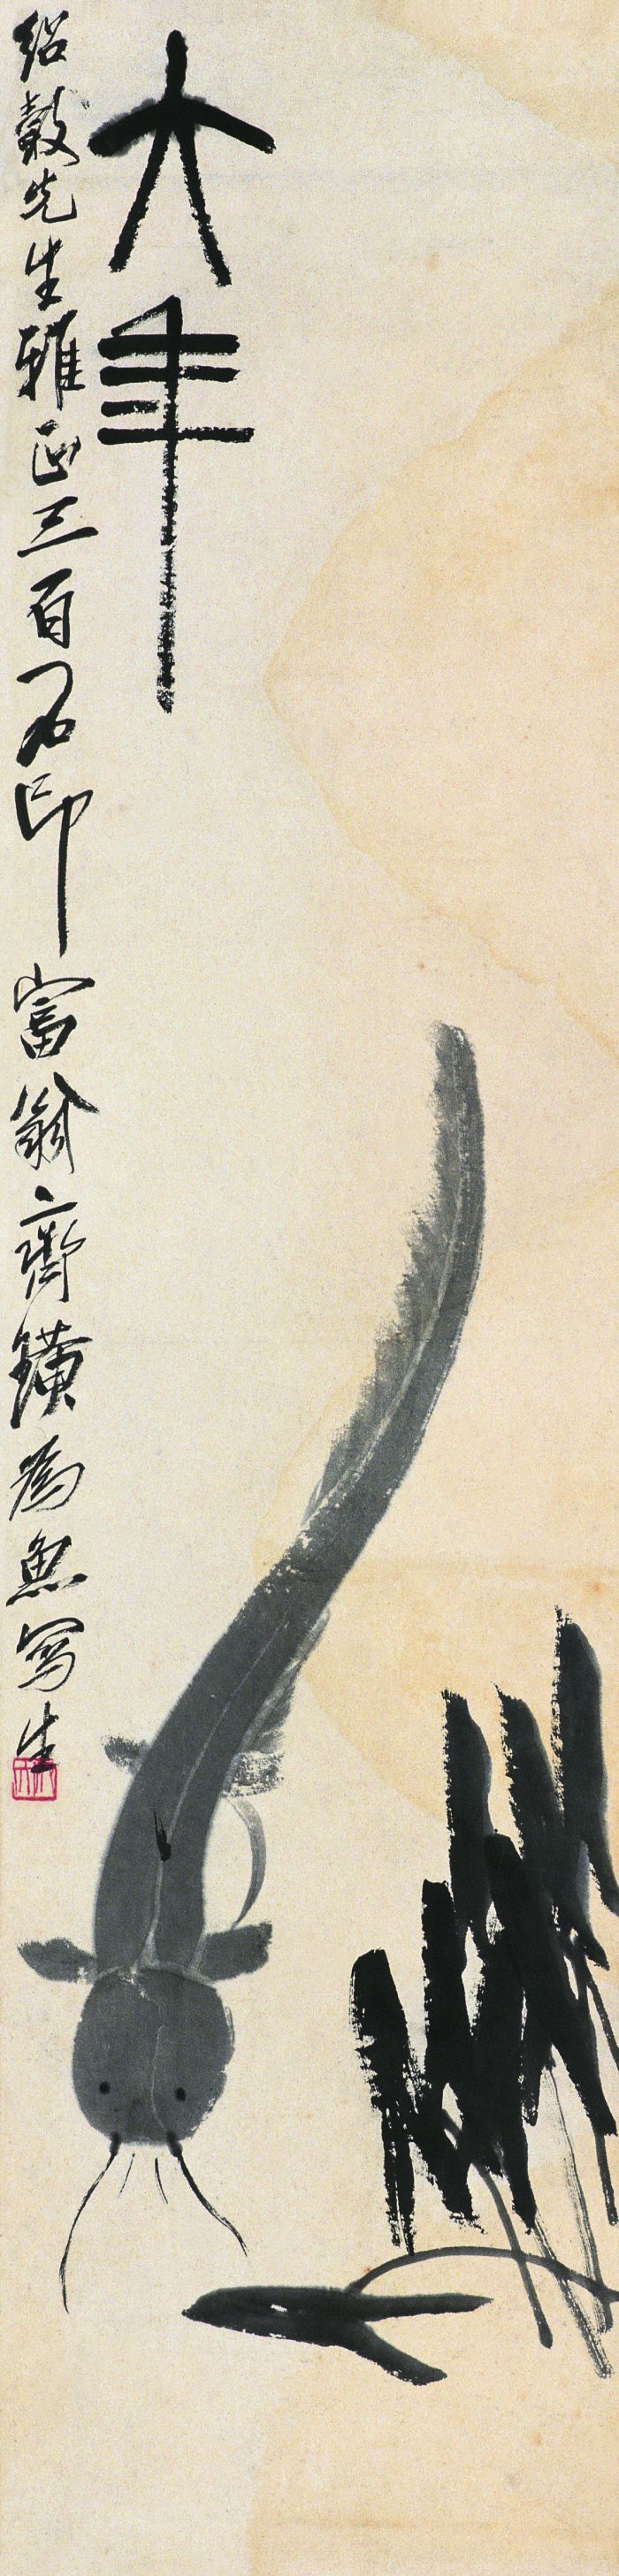 大年
绍毂先生雅正三百石印富翁齊璜為魚写生